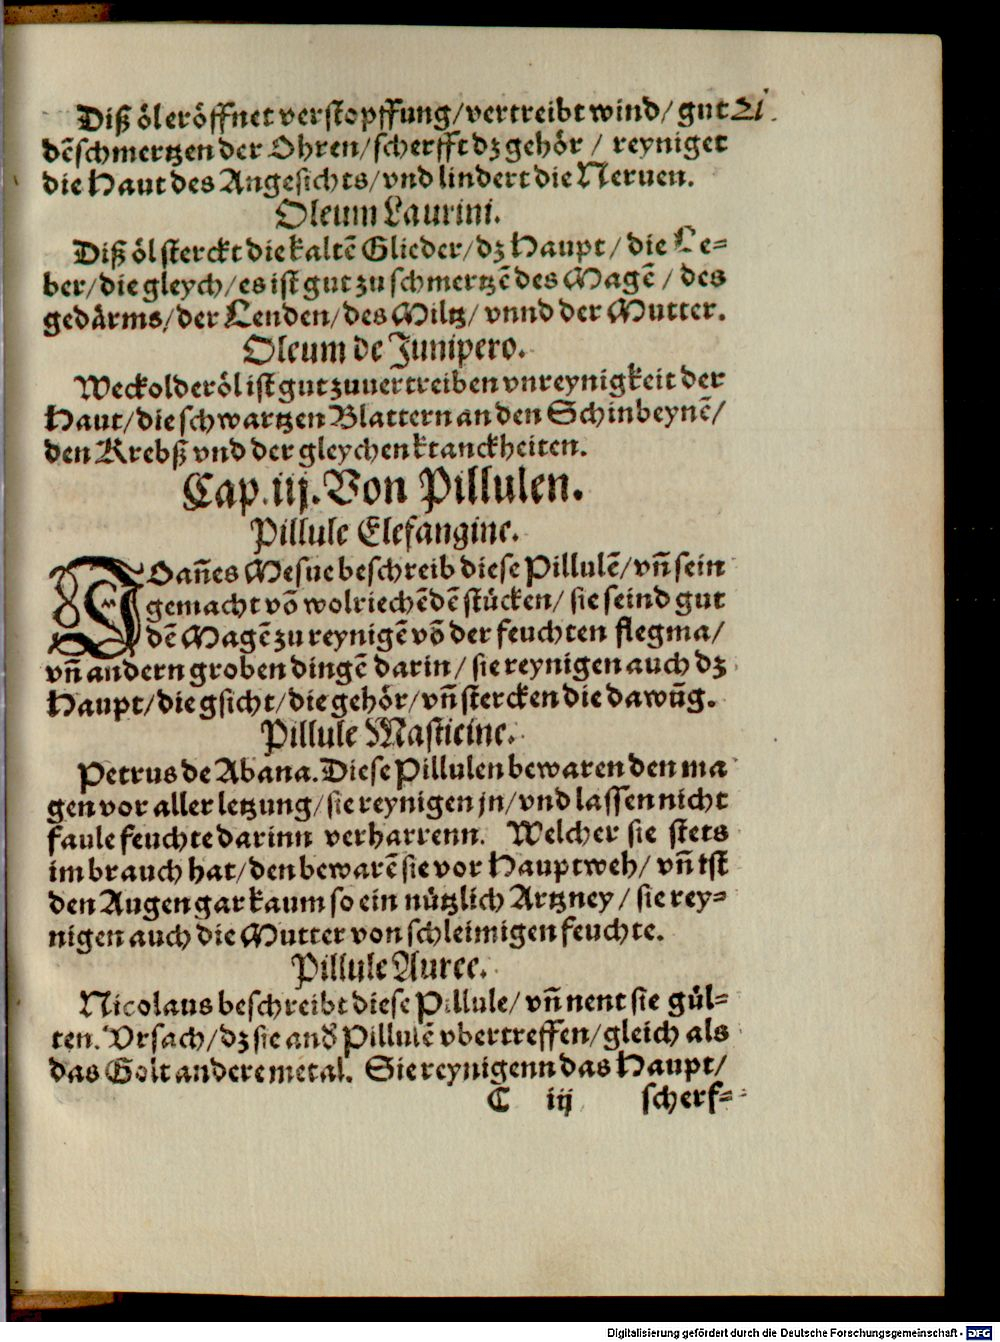 Diß öl eröffnet verstopffung/vertreibt wind/gut 21.
dē schmertzen der Ohren/scherfft dz gehör / reyniget
die Haut des Angesichts/vnd lindert die Neruen.
Oleum Laurini.
Diß öl sterckt die kaltē Glieder/dz Haupt/die Le=
ber/die gleych/es ist gut zu schmertzē des Magē / des
gedärms/der Lenden/des Miltz/vnnd der Mutter.
Oleum de Junipero.
Weckolderöl ist gut zuuertreiben vnreynigkeit der
Haut/die schwartzen Blattern an den Schinbeynē/
den Krebß vnd der gleychen ktanckheiten.
Cap.iij.Von Pillulen.
Pillule Elefangine.
JOan̄es Mesue beschreib diese Pillulē/vn̄ sein
gemacht vō wolriechēdē stücken/ sie seind gut
dē Magē zu reynigē vō der feuchten flegma/
vn̄ andern groben dingē darin/ sie reynigen auch dz
Haupt/die gsicht/die gehör/vn̄ stercken die dawūg.
Pillule Masticine.
Petrus de Abana. Diese Pillulen bewaren den ma
gen vor aller letzung/sie reynigen jn/vnd lassen nicht
faule feuchte darinn verharrenn. Welcher sie stets
im brauch hat/den bewarē sie vor Hauptweh/vn̄ ist
den Augen gar kaum so ein nützlich Artzney / sie rey=
nigen auch die Mutter von schleimigen feuchte.
Pillule Auree.
Nicolaus beschreibt diese Pillule/vn̄ nent sie gül=
ten. Vrsach/dz sie and̕ Pillulē vbertreffen/gleich als
das Golt andere metal. Sie reynigenn das Haupt/
C iij scherf=
Digitalisierung gefördert durch die Deutsche Forschungsgemeinschaft - DFG